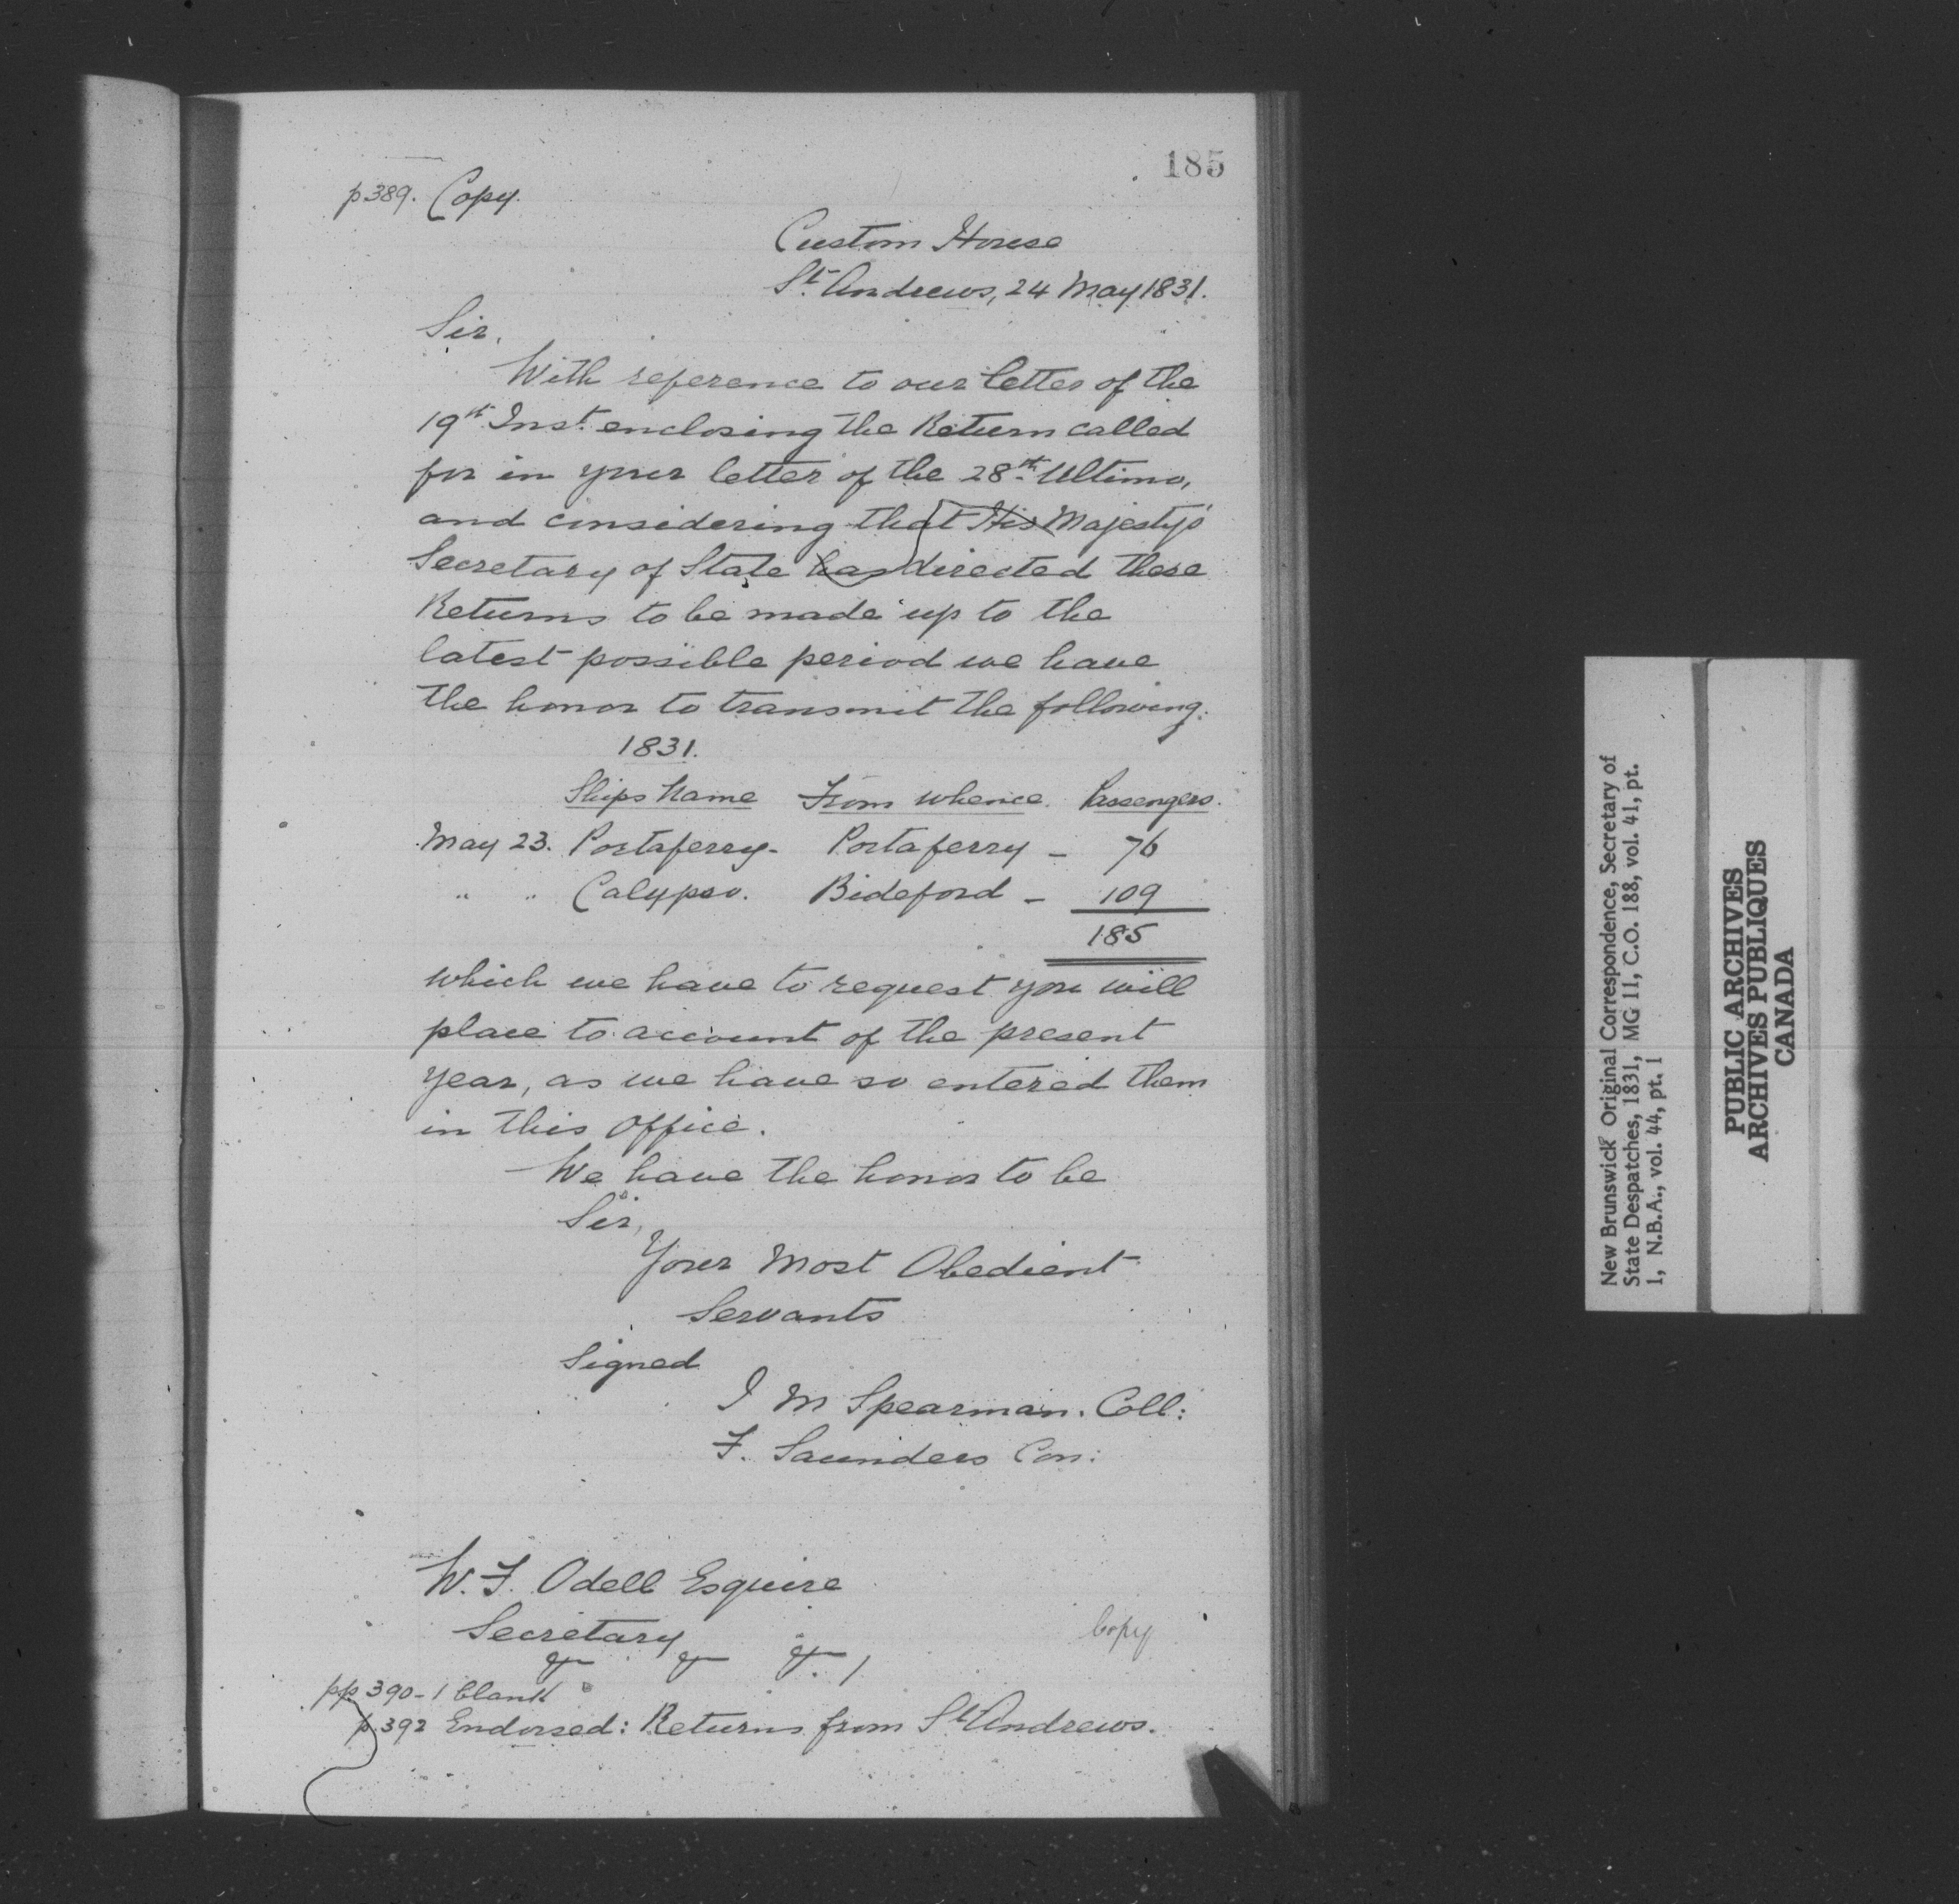 185
p 389. Copy.
Custom House
St. Andrews, 24 May 1831.
Sir,
With reference to our letter of the
19th Inst. enclosing the Return called
for in your letter of the 28th Ultimo,
and considering that His Majesty's
Secretary of State has directed these
Returns to be made up to the
latest possible period we have
the honor to transmit the following.
1831.
Ships Name From whence. Passengers.
May 23. Portaferry - Portaferry - 76
" " Calypso. Bideford - 109
185
which we have to request you will
place to account of the present
year, as we have so entered them
in this office.
We have the honor to be
Sir,
Your Most Obedient
Servants
Signed
I M Spearman. Coll:
F. Saunders Con:
W. F. Odell Esquire
Secretary
& & &
Copy
pp 390-1 blank
p. 392 Endorsed: Returns from St Andrews.
New Brunswick Original Correspondence, Secretary of
State Despatches, 1831, MG 11, C.O. 188, vol. 41, pt.
1, N.B.A., vol. 44, pt. 1
PUBLIC ARCHIVES
ARCHIVES PUBLIQUES
CANADA